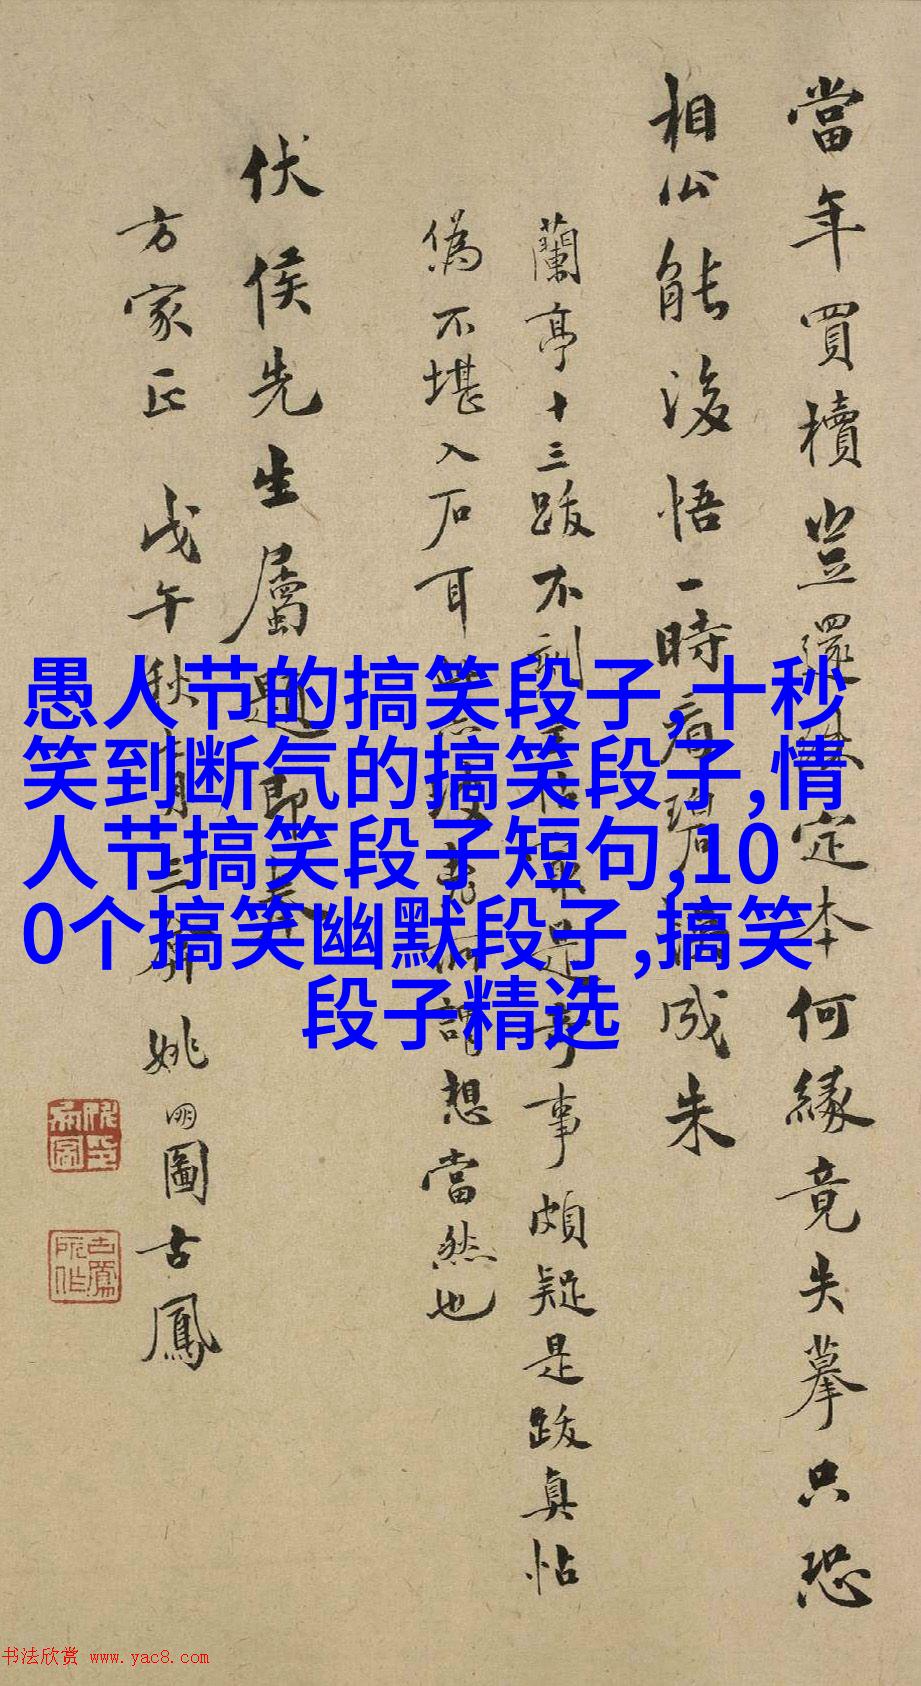 當年買櫝豈還珠定本何緣竟失摹只恐
相公能後悟一時看碧成朱
蘭亭十三跋不刻帖寔是奇事頗疑是跋真帖
偽不堪入石耳坡老所謂想當然也
伏侯先生屬題即奉
方家正 戊午秋月三 姚朋圖古鳳
愚人节的搞笑段子,十秒
笑到断气的搞笑段子,情
人节搞笑段子短句,10
0个搞笑幽默段子,搞笑
段子精选
书法欣赏 www.yac8.com